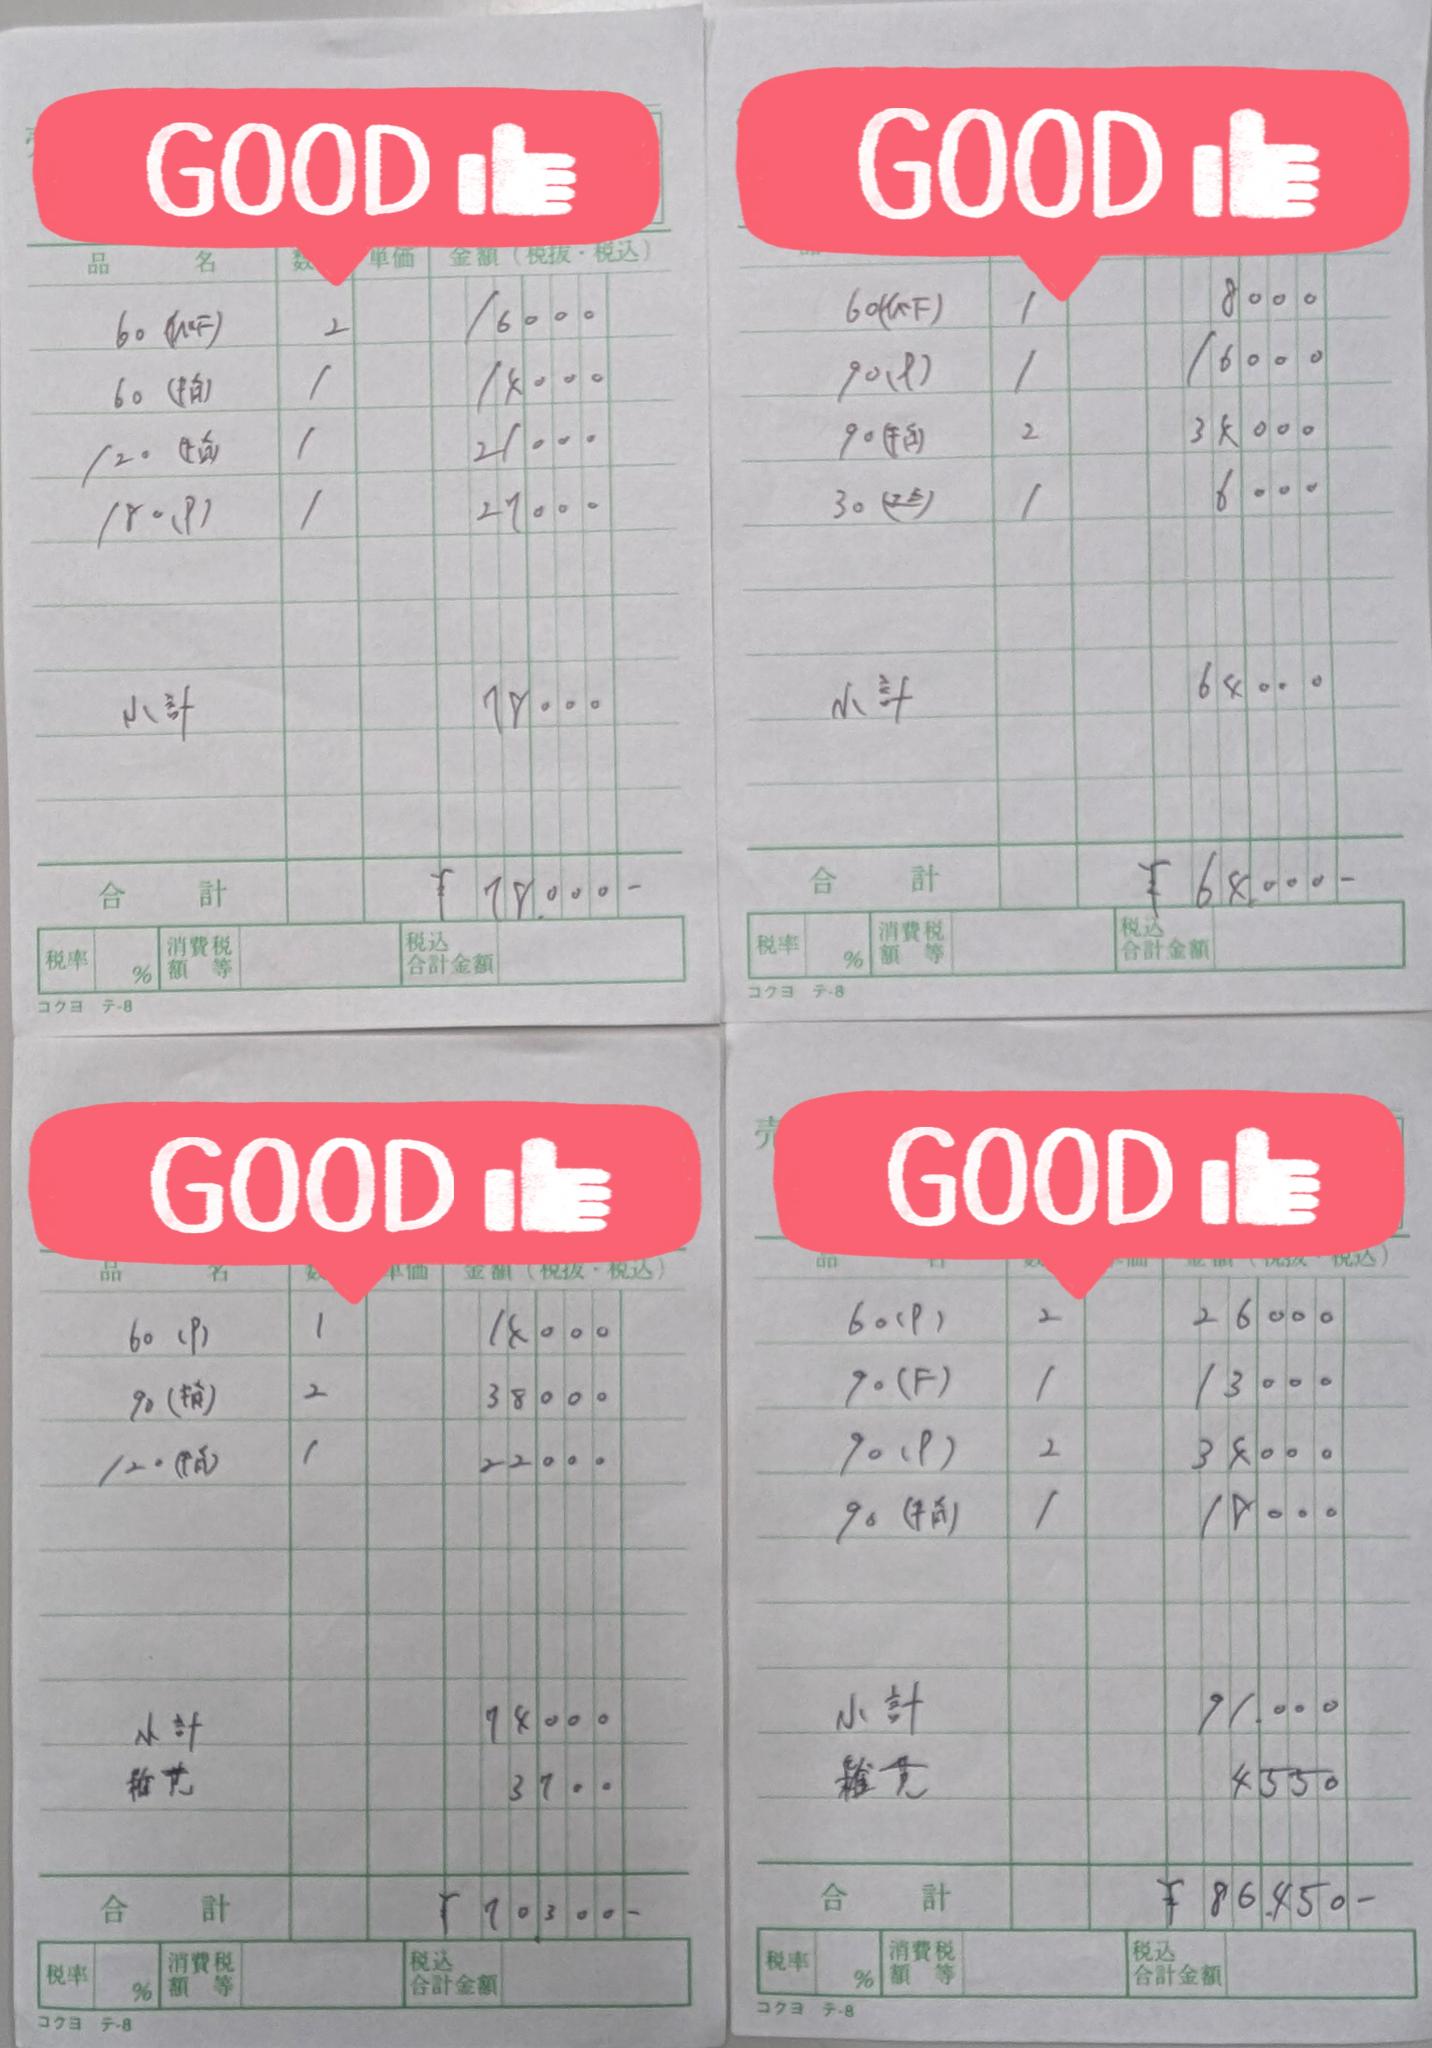 GOOD
品 名 数 単価 金額（税抜・税込）
60 2 16000
60 (指) 1 14000
120 (指) 1 21000
180 (P) 1 27000
小計 78000
合計 ¥78.000-
税率 % 消費税額等 税込合計金額
コクヨ テ-8
GOOD
60 1 8000
90 (P) 1 16000
90 (指) 2 34000
30 1 6000
小計 64000
合計 ¥64.000-
税率 % 消費税額等 税込合計金額
コクヨ テ-8
GOOD
品 名 数 単価 金額（税抜・税込）
60 (P) 1 14000
90 (指) 2 38000
120 (指) 1 22000
小計 74000
3700
合計 ¥70300-
税率 % 消費税額等 税込合計金額
コクヨ テ-8
売
GOOD
品 名 数 単価 金額（税抜・税込）
60 (P) 2 26000
90 (F) 1 13000
90 (P) 2 34000
90 (指) 1 18000
小計 91.000
4550
合計 ¥86.450-
税率 % 消費税額等 税込合計金額
コクヨ テ-8